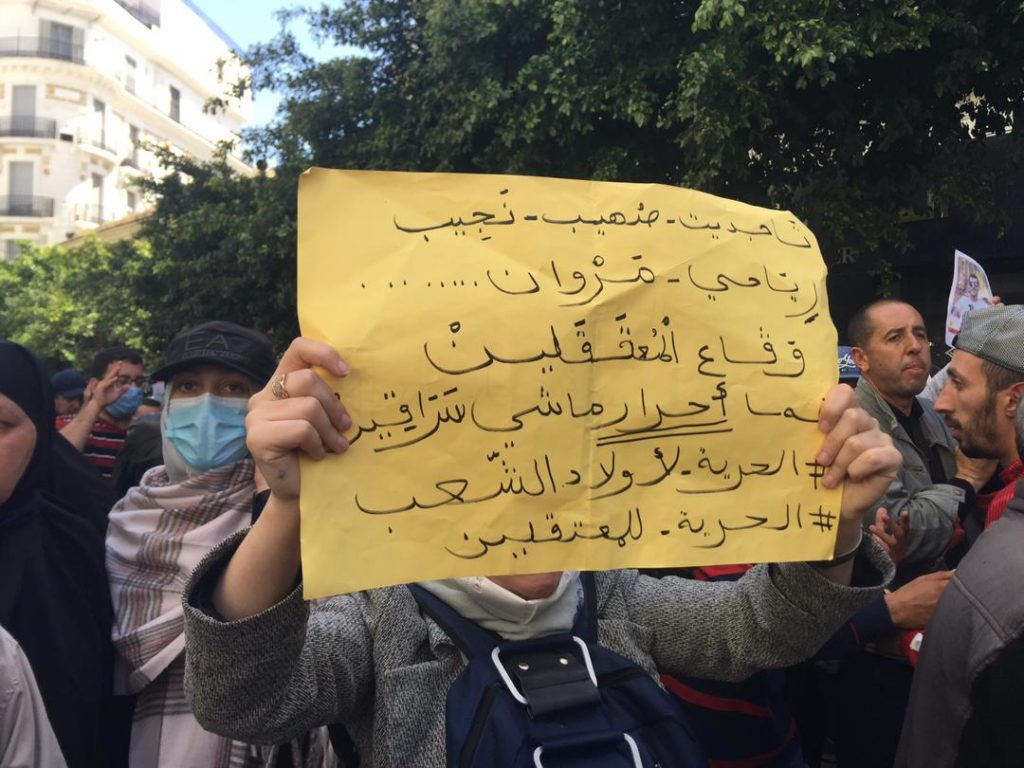 تاجديت - صُهيب - نَجِيب
رِيَاحي - مَرْوان .........
وَقَاع الْمُعتَقَلين
نما أحرار ماشي سَرَاقِين
#الحرية_لأولاد الشّعب
#الحرية_للمعتقلين
EA7